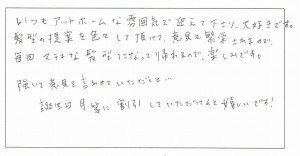 いつもアートホームな雰囲気で迎えて下さり、大好きです。
髪型の提案を色々して頂けて、意見も繁栄されるので、
毎回 ステキな髪型になって帰れるので、楽しみです。
強いて意見を言わせていただくと…
誕生日月等に割引していただけると嬉しいです!